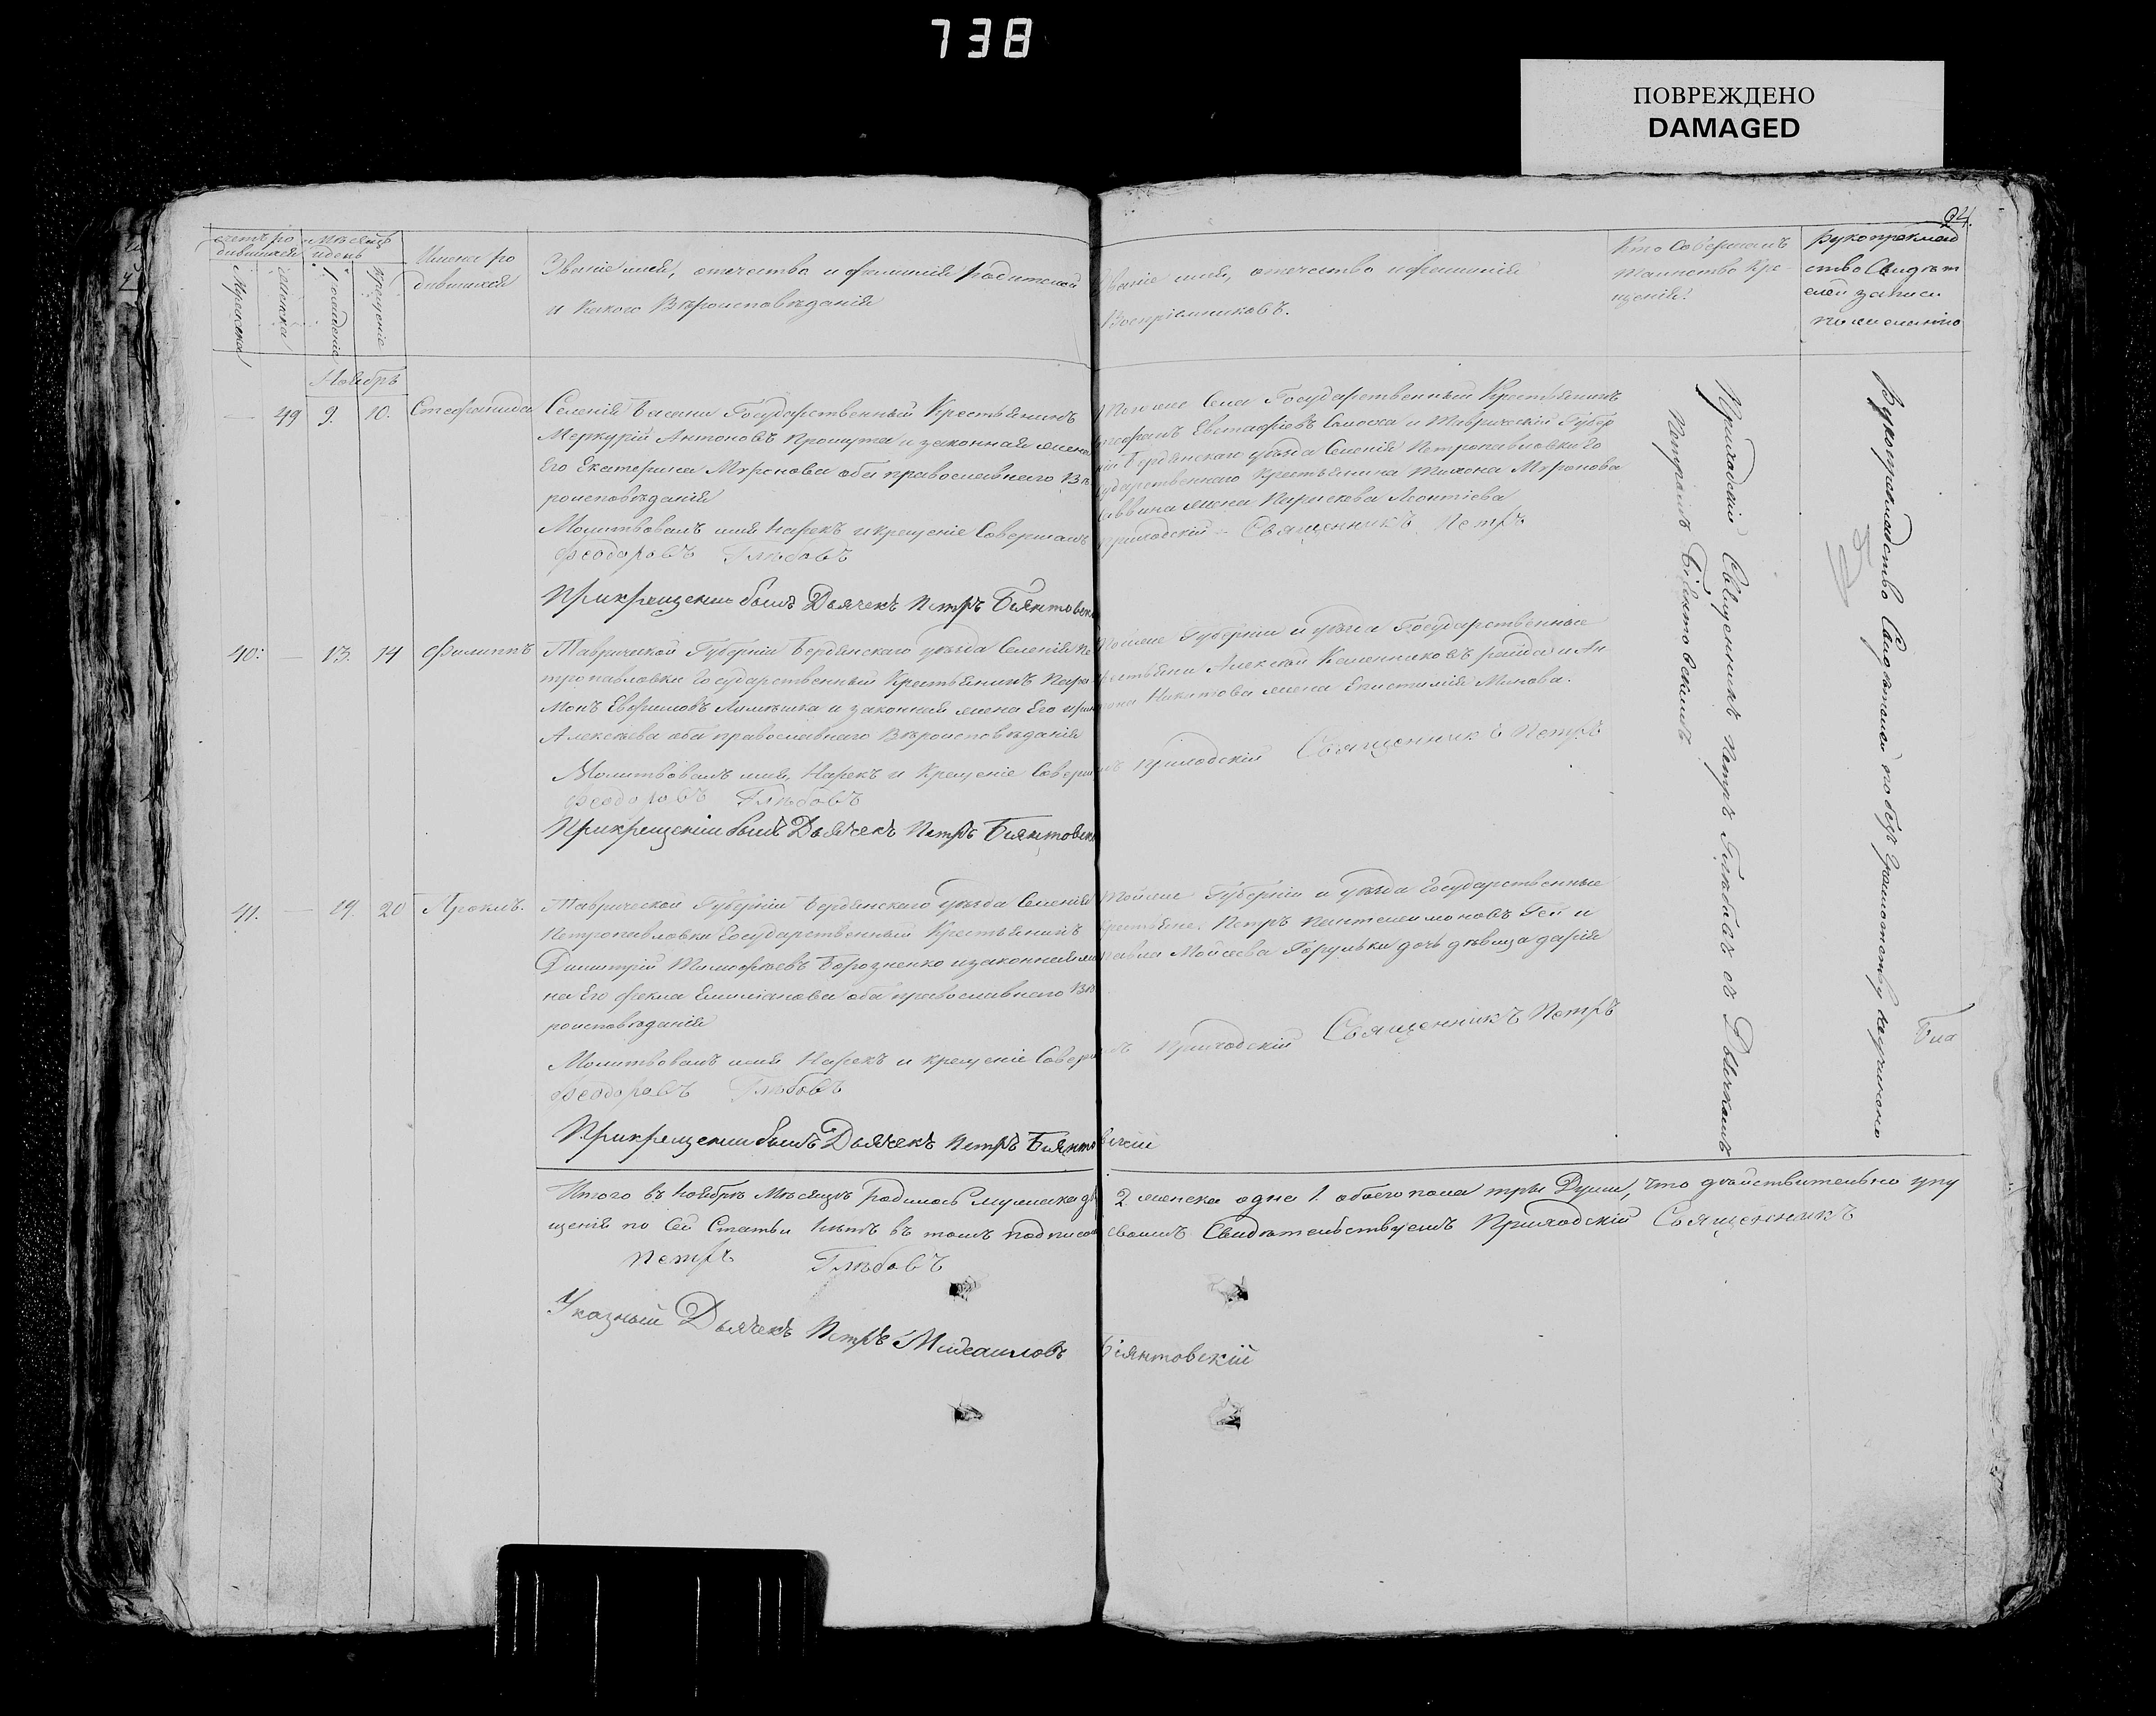 738
ПОВРЕЖДЕНО
DAMAGED
94.
счетъ ро
дившихся
Мѣсяцъ
и день
Мужеска
Женска
Рожденіе
Крещеніе
Имена ро
дившихся
Званіе имя, отечество и фамилія родителей
и какого Вѣроисповѣданія
Званіе имя, отечество и фамилія
Воспріемниковъ.
Кто Совершалъ
таинство Кре
щенія.
Рукоприклад
ство Свидѣт
елей записи
по желанію
Ноябрь
49 9. 10. Стефанида
Селенія Басани Государственный Крестьянинъ
Меркурій Антоновъ и законная жена
Его Екатерина Миронова оба православнаго Вѣ
роисповѣданія
Молитвовалъ имя Нарекъ и крещеніе Совершалъ
Феодоровъ Глѣбовъ
При крещеніи былъ Дьячекъ Петръ Біянтовск
Тогоже Села Государственный Крестьянинъ
Стефанъ Евстафіевъ и Таврической Губер
ніи Бердянскаго уѣзда Селенія Петропавловки Го
сударственнаго Крестьянина Тихона Миронова
жена Параскева Леонтіева
приходскій Священникъ Петръ
40: — 13. 14 Филиппъ
Таврической Губерніи Бердянскаго уѣзда Селенія Пе
тропавловки Государственный Крестьянинъ Пара
монъ Евфимовъ и законная жена Его Ирина
Алексѣева оба православнаго Вѣроисповѣданія
Молитвовалъ имя, Нарекъ и Крещеніе Соверш
Феодоровъ Глѣбовъ
При крещеніи былъ Дьячекъ Петръ Біянтовск
Тойже Губерніи и уѣзда Государственные
крестьяни Алексѣй и Ан
Никитова жена Епистимія
алъ приходскій Священникъ Петръ
41. — 19. 20 Проклъ.
Таврической Губерніи Бердянскаго уѣзда Селенія
Петропавловки Государственный Крестьянинъ
Димитрій Тимофѣевъ Борозненко и законная же
на Его Фекла Емиліанова оба православнаго Вѣ
роисповѣданія
Молитвовалъ имя Нарекъ и крещеніе Соверш
Феодоровъ Глѣбовъ
При крещеніи былъ Дьячекъ Петръ Біянтовскій
Тойже Губерніи и уѣзда Государственные
Крестьяне, Петръ Пантелеимоновъ Гей и
Павла Мойсеева дочь дѣвица Дарія
алъ Приходскій Священникъ Петръ
Приходскій Священникъ Петръ Глѣбовъ съ Дьячкомъ
Петромъ Біянтовскимъ
Рукоприкладство Свидѣтелей по безграмотству
Бла
Итого въ Ноябрѣ Мѣсяцѣ родилось мужска дв 2 женска одна 1. обоего пола три Души, что дѣйствительно упу
щенія по Сей Статьи нѣтъ въ томъ подписомъ своимъ Свидѣтельствуемъ Приходскій Священникъ
Петръ Глѣбовъ
Указный Дьячекъ Петръ Михаиловъ Біянтовскій